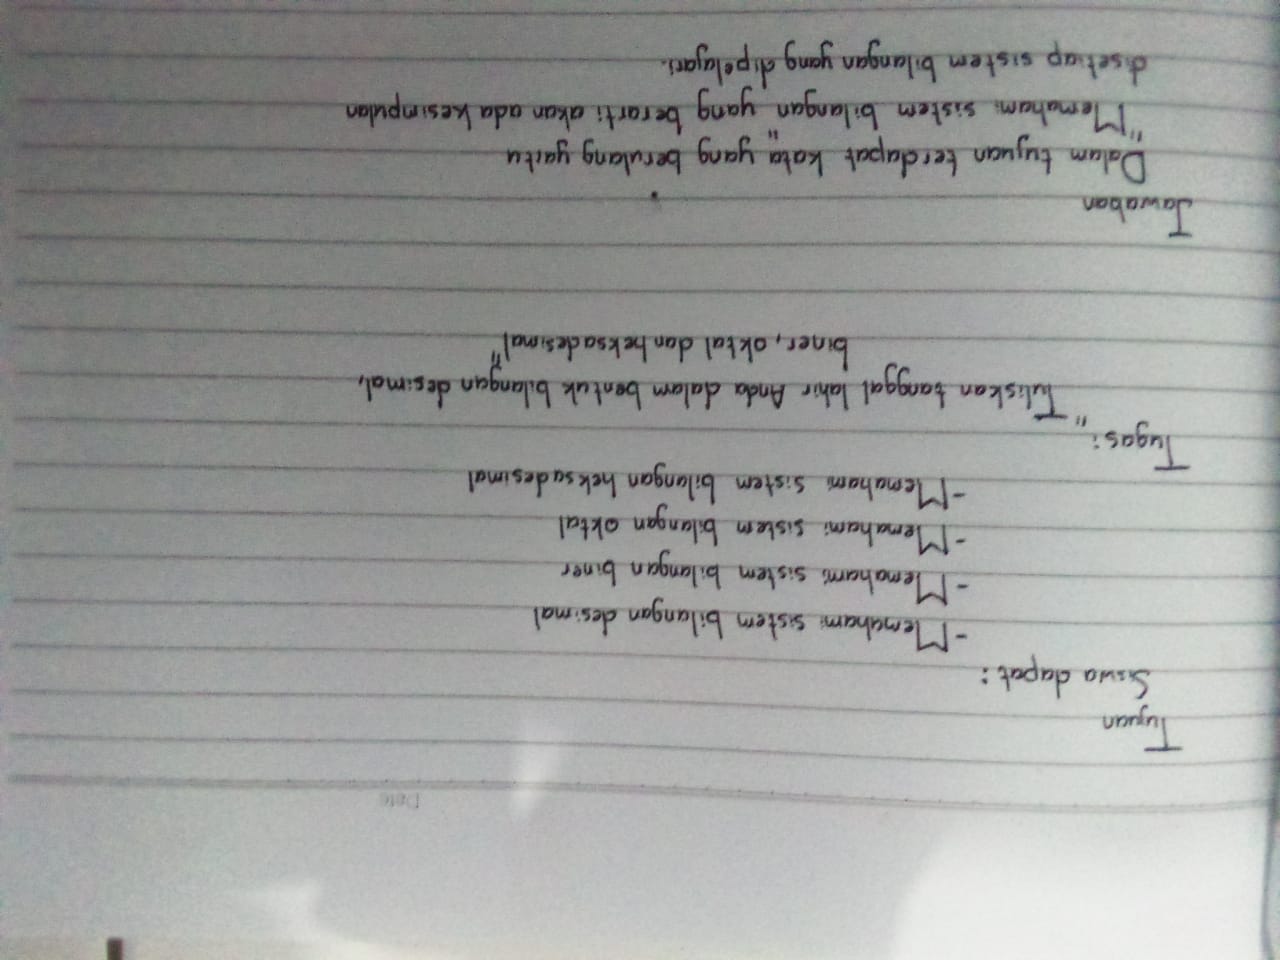 Date
Tujuan
Siswa dapat :
- Memahami sistem bilangan desimal
- Memahami sistem bilangan biner
- Memahami sistem bilangan oktal
- Memahami sistem bilangan heksadesimal
Tugas :
"Tuliskan tanggal lahir Anda dalam bentuk bilangan desimal,
biner, oktal dan heksadesimal"
Jawaban
Dalam tujuan terdapat kata yang berulang yaitu
"Memahami sistem bilangan" yang berarti akan ada kesimpulan
disetiap sistem bilangan yang dipelajari.